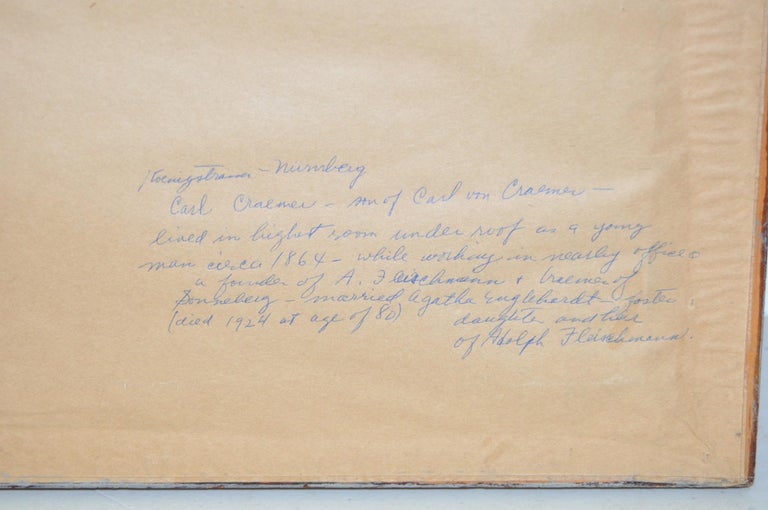 Koenigstrasse - Nurnberg
Carl Craemer - son of Carl von Craemer -
lived in highest room under roof as a young
man circa 1864 - while working in nearby office
a founder of A. Fleischmann + Craemer of
Sonneberg - married Agatha Englehardt foster
(died 1924 at age of 80) daughter and
of Adolph Fleischmann.